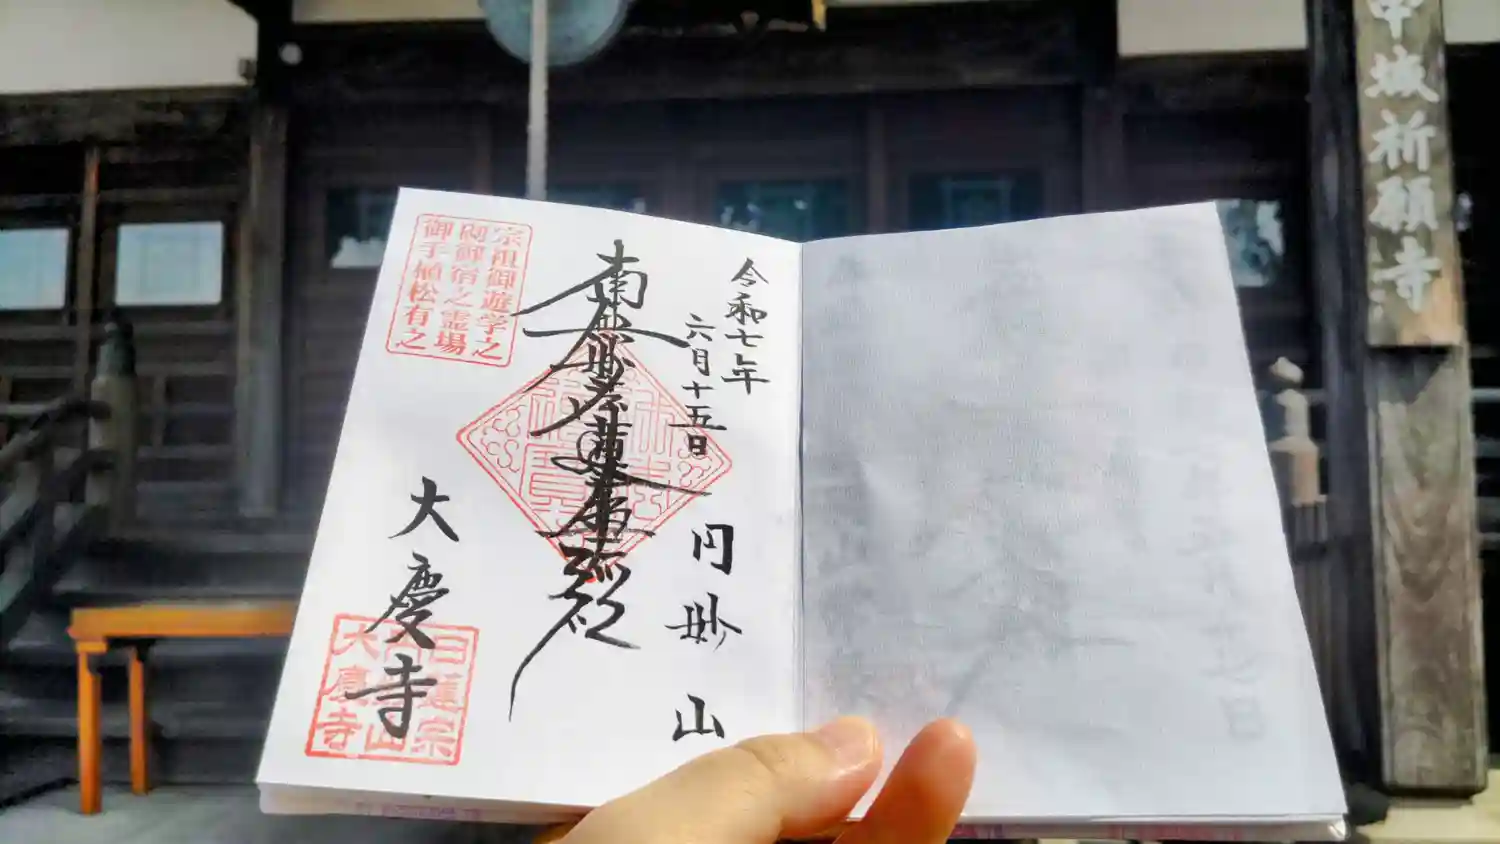 令和七年
六月十五日
円妙山
南無妙法蓮華経
大慶寺
宗祖御遊学之
砌御宿之霊場
御手植松有之
日蓮宗
大慶寺
中城祈願寺